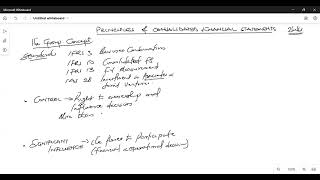 Microsoft Whiteboard
Untitled whiteboard
PRINCIPLES OF CONSOLIDATED FINANCIAL STATEMENTS
The Group Concept
Standards IFRS 3 Business Combinations
IFRS 10 Consolidated FS
IFRS 13 FV Measurement
IAS 28 Investment in Associates &
Joint Ventures
CONTROL → Right to ownership and
influence decisions
More than
SIGNIFICANT → The Power to Participate
INFLUENCE (Financial & operational decision)